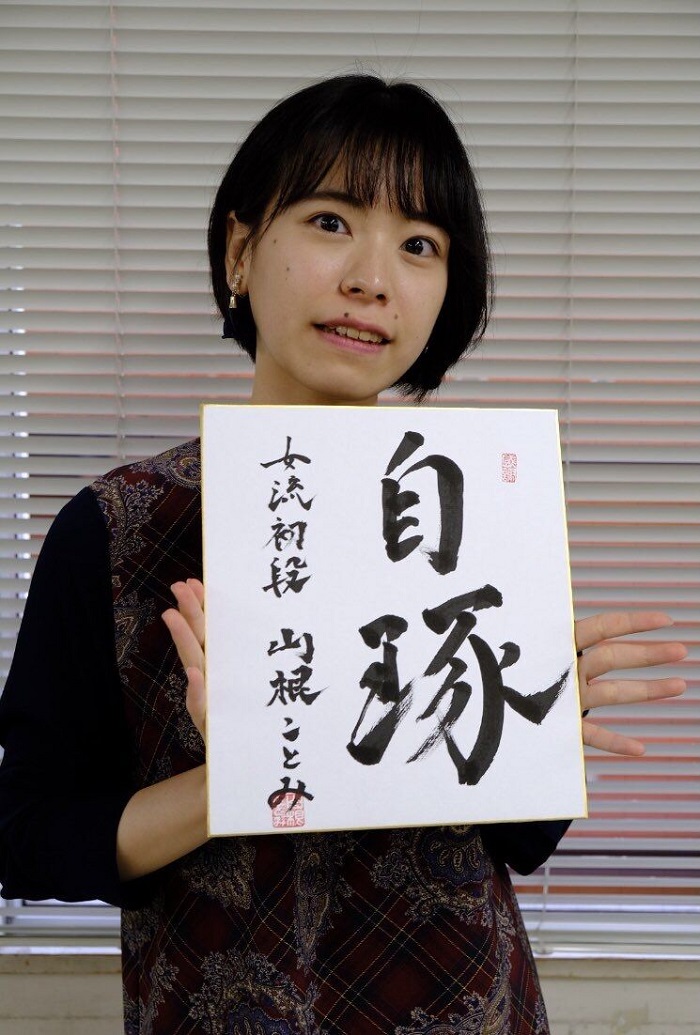 自琢
女流初段 山根ことみ